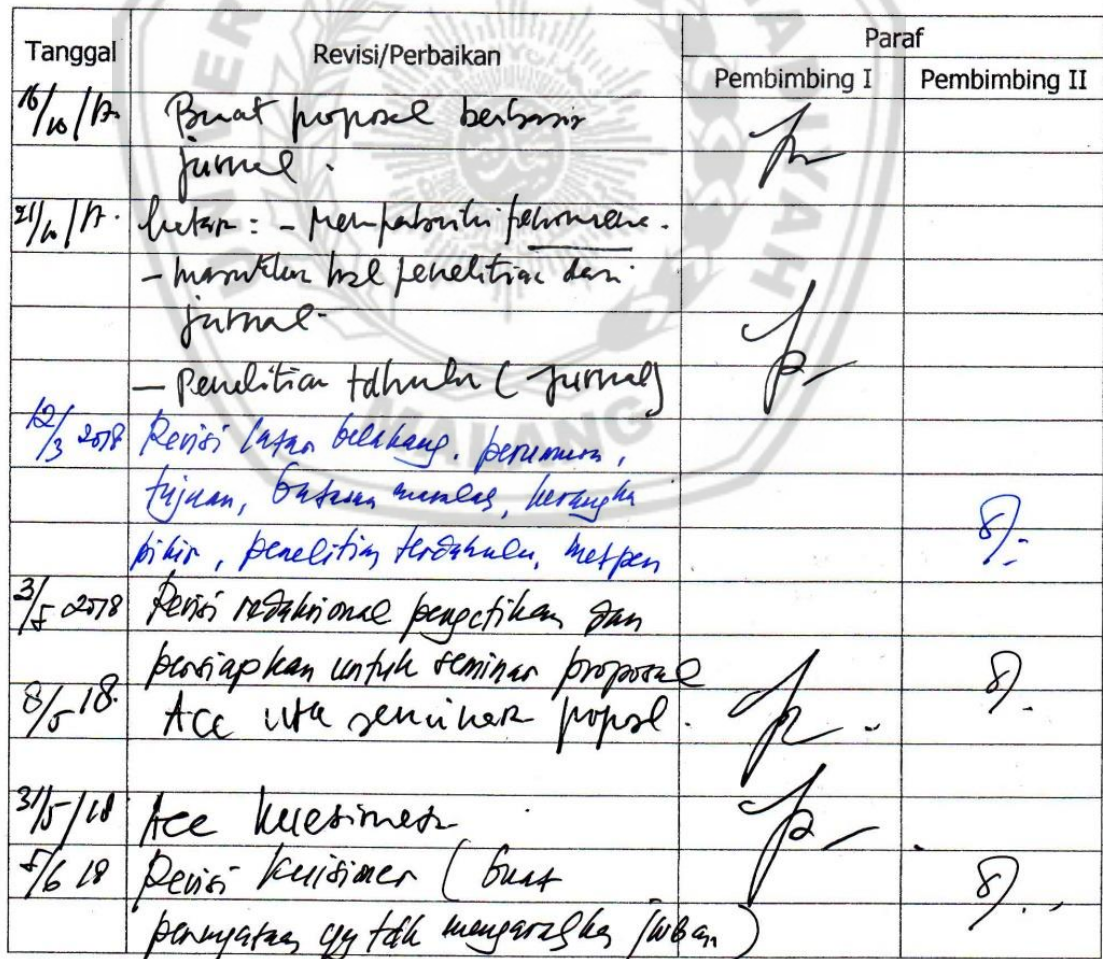 Tanggal Revisi/Perbaikan Paraf
Pembimbing I Pembimbing II
16/10/17. Buat proposal berbasis
jurnal.
21/10/17. - Memperbaiki fenomena.
- masukkan hsl penelitian dari
jurnal-
- Penelitian tdhulu (jurnal)
12/3 2018 Revisi latar belakang. perumusan,
tujuan, batasan masalah, kerangka
pikir, penelitian terdahulu, metpen
3/5 2018 Revisi redaksional pengetikan dan
persiapkan untuk seminar proposal
8/5 18. Acc utk seminar proposal.
31/5/18 Acc kuesioner
5/6 18 Revisi kuisioner (buat
pernyataan yg tdk mengarahkan jwban)
MALANG